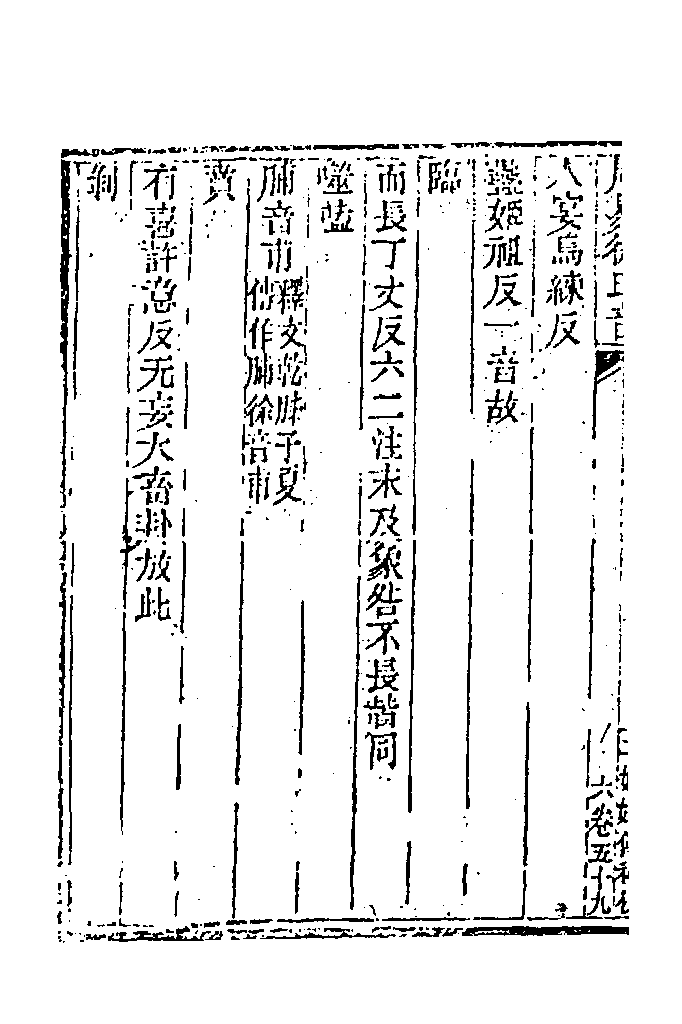 周易徐氏音
六 卷五十九
入宴烏練反
蠱姬祖反一音故
臨
而長丁丈反六二注末及象咎不長皆同
噬嗑
脯音甫釋文乾胏子夏
傳作脯徐音甫
賁
有喜許意反无妄大畜卦放此
剝